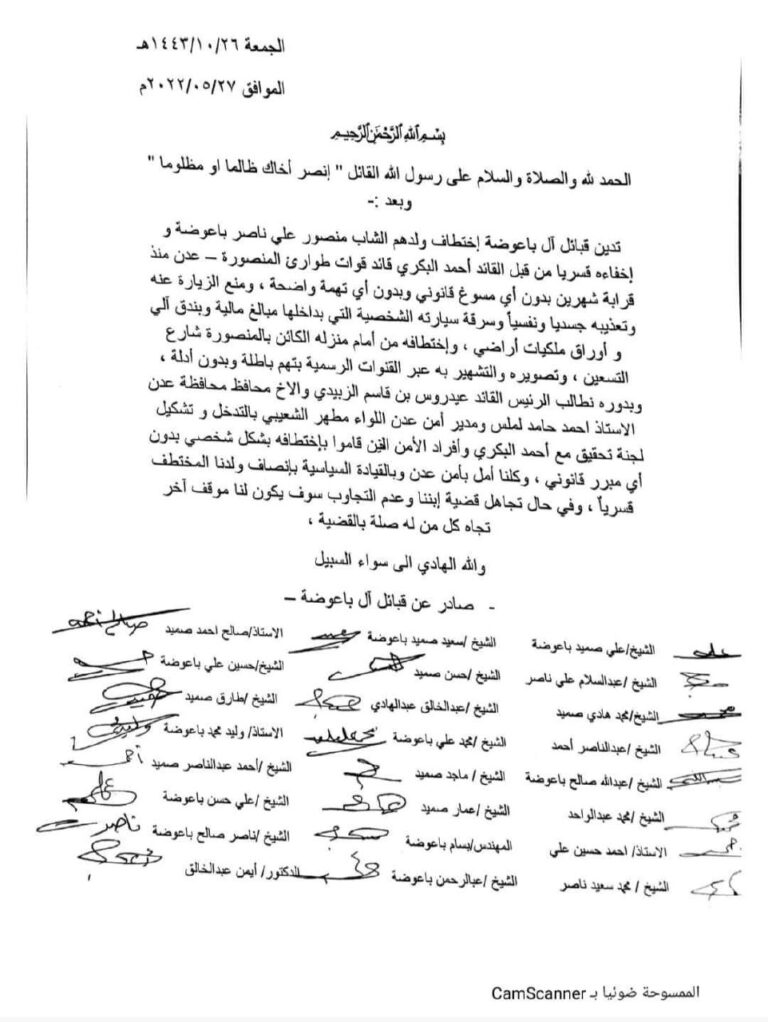 الجمعة ١٤٤٣/١٠/٢٦هـ
الموافق ٢٠٢٢/٠٥/٢٧م
بِسْمِ اللهِ الرَّحْمَنِ الرَّحِيمِ
الحمد لله والصلاة والسلام على رسول الله القائل " إنصر أخاك ظالما او مظلوما "
وبعد :-
تدين قبائل آل باعوضة إختطاف ولدهم الشاب منصور علي ناصر باعوضة و
إخفاءه قسريا من قبل القائد أحمد البكري قائد قوات طوارئ المنصورة – عدن منذ
قرابة شهرين بدون أي مسوغ قانوني وبدون أي تهمة واضحة ، ومنع الزيارة عنه
وتعذيبه جسديا ونفسياً وسرقة سيارته الشخصية التي بداخلها مبالغ مالية وبندق آلي
و أوراق ملكيات أراضي ، وإختطافه من أمام منزله الكائن بالمنصورة شارع
التسعين ، وتصويره والتشهير به عبر القنوات الرسمية بتهم باطلة وبدون أدلة ،
وبدوره نطالب الرئيس القائد عيدروس بن قاسم الزبيدي والاخ محافظ محافظة عدن
الاستاذ احمد حامد لملس ومدير أمن عدن اللواء مطهر الشعيبي بالتدخل و تشكيل
لجنة تحقيق مع أحمد البكري وأفراد الأمن الذين قاموا بإختطافه بشكل شخصي بدون
أي مبرر قانوني ، وكلنا أمل بأمن عدن وبالقيادة السياسية بإنصاف ولدنا المختطف
قسرياً ، وفي حال تجاهل قضية إبننا وعدم التجاوب سوف يكون لنا موقف آخر
تجاه كل من له صلة بالقضية ،
والله الهادي الى سواء السبيل
- صادر عن قبائل آل باعوضة –
الشيخ/علي صميد باعوضة الشيخ /سعيد صميد باعوضة الاستاذ/صالح احمد صميد
الشيخ /عبدالسلام علي ناصر الشيخ /حسن صميد الشيخ/حسين علي باعوضة
الشيخ/محمد هادي صميد الشيخ /عبدالخالق عبدالهادي الشيخ /طارق صميد
الشيخ /عبدالناصر أحمد الشيخ /محمد علي باعوضة الاستاذ/ وليد محمد باعوضة
الشيخ /عبدالله صالح باعوضة الشيخ / ماجد صميد الشيخ /أحمد عبدالناصر صميد
الشيخ /محمد عبدالواحد الشيخ /عمار صميد الشيخ /علي حسن باعوضة
الاستاذ/ احمد حسين علي المهندس/بسام باعوضة الشيخ /ناصر صالح باعوضة
الشيخ / محمد سعيد ناصر الشيخ /عبالرحمن باعوضة الدكتور/ أيمن عبدالخالق
الممسوحة ضوئيا بـ CamScanner